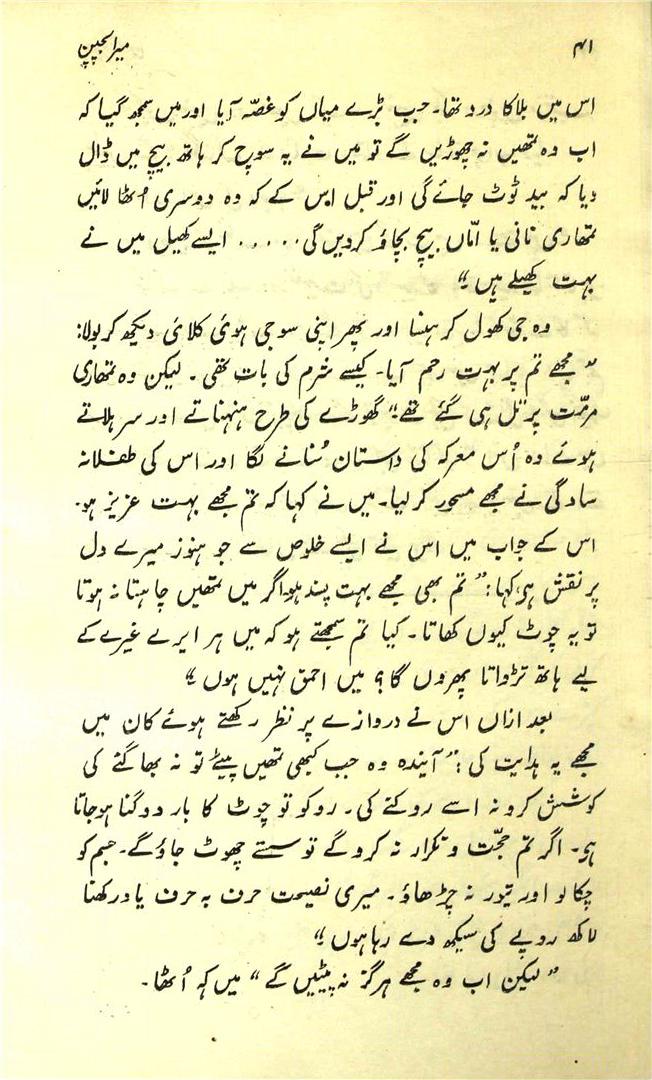 ۴۱
میرا بچپن
اس میں بلا کا درد تھا۔ جب بڑے میاں کو غصّہ آیا اور میں سمجھ گیا کہ
اب وہ تمھیں نہ چھوڑیں گے تو میں نے یہ سوچ کر ہاتھ بیچ میں ڈال
دیا کہ بید ٹوٹ جائے گی اور قبل اس کے کہ وہ دوسری اُٹھا لائیں
تمھاری نانی یا امّاں بیچ بچاؤ کر دیں گی..... ایسے کھیل میں نے
بہت کھیلے ہیں"
وہ جی کھول کر ہنسا اور پھر اپنی سوجی ہوئی کلائی دیکھ کر بولا:
"مجھے تم پر بہت رحم آیا۔ کیسے شرم کی بات تھی۔ لیکن وہ تمھاری
مرمّت پر تُل ہی گئے تھے" گھوڑے کی طرح ہنہناتے اور سر ہلاتے
ہوئے وہ اُس معرکہ کی داستان سُنانے لگا اور اس کی طفلانہ
سادگی نے مجھے مسحور کر لیا۔ میں نے کہا کہ تم مجھے بہت عزیز ہو۔
اس کے جواب میں اس نے ایسے خلوص سے جو ہنوز میرے دل
پر نقش ہی کہا: "تم بھی مجھے بہت پسند ہو اگر میں تمھیں چاہتا نہ ہوتا
تو یہ چوٹ کیوں کھاتا۔ کیا تم سمجھتے ہو کہ میں ہر ایرے غیرے کے
لیے ہاتھ تڑواتا پھروں گا؟ میں احمق نہیں ہوں"
بعد ازاں اس نے دروازے پر نظر رکھتے ہوئے کان میں
مجھے یہ ہدایت کی: "آیندہ وہ جب کبھی تمھیں پیٹے تو نہ بھاگنے کی
کوشش کرو نہ اسے روکنے کی۔ روکو تو چوٹ کا بار دوگنا ہو جاتا
ہی۔ اگر تم حجّت و تکرار نہ کرو گے تو سستے چھوٹ جاؤ گے۔ جسم کو
چکا لو اور تیور نہ چڑھاؤ۔ میری نصیحت حرف بہ حرف یاد رکھنا
لاکھ روپے کی سیکھ دے رہا ہوں"
"لیکن اب وہ مجھے ہرگز نہ پیٹیں گے" میں کہہ اُٹھا۔